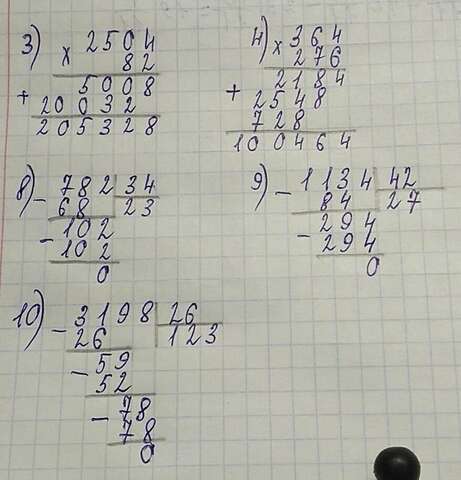 3) × 2504
82
+ 5008
20032
205328
4) × 364
276
+ 2184
2548
728
100464
8) - 782 | 34
68 | 23
- 102
102
0
9) - 1134 | 42
84 | 27
- 294
294
0
10) - 3198 | 26
26 | 123
- 59
52
- 78
78
0